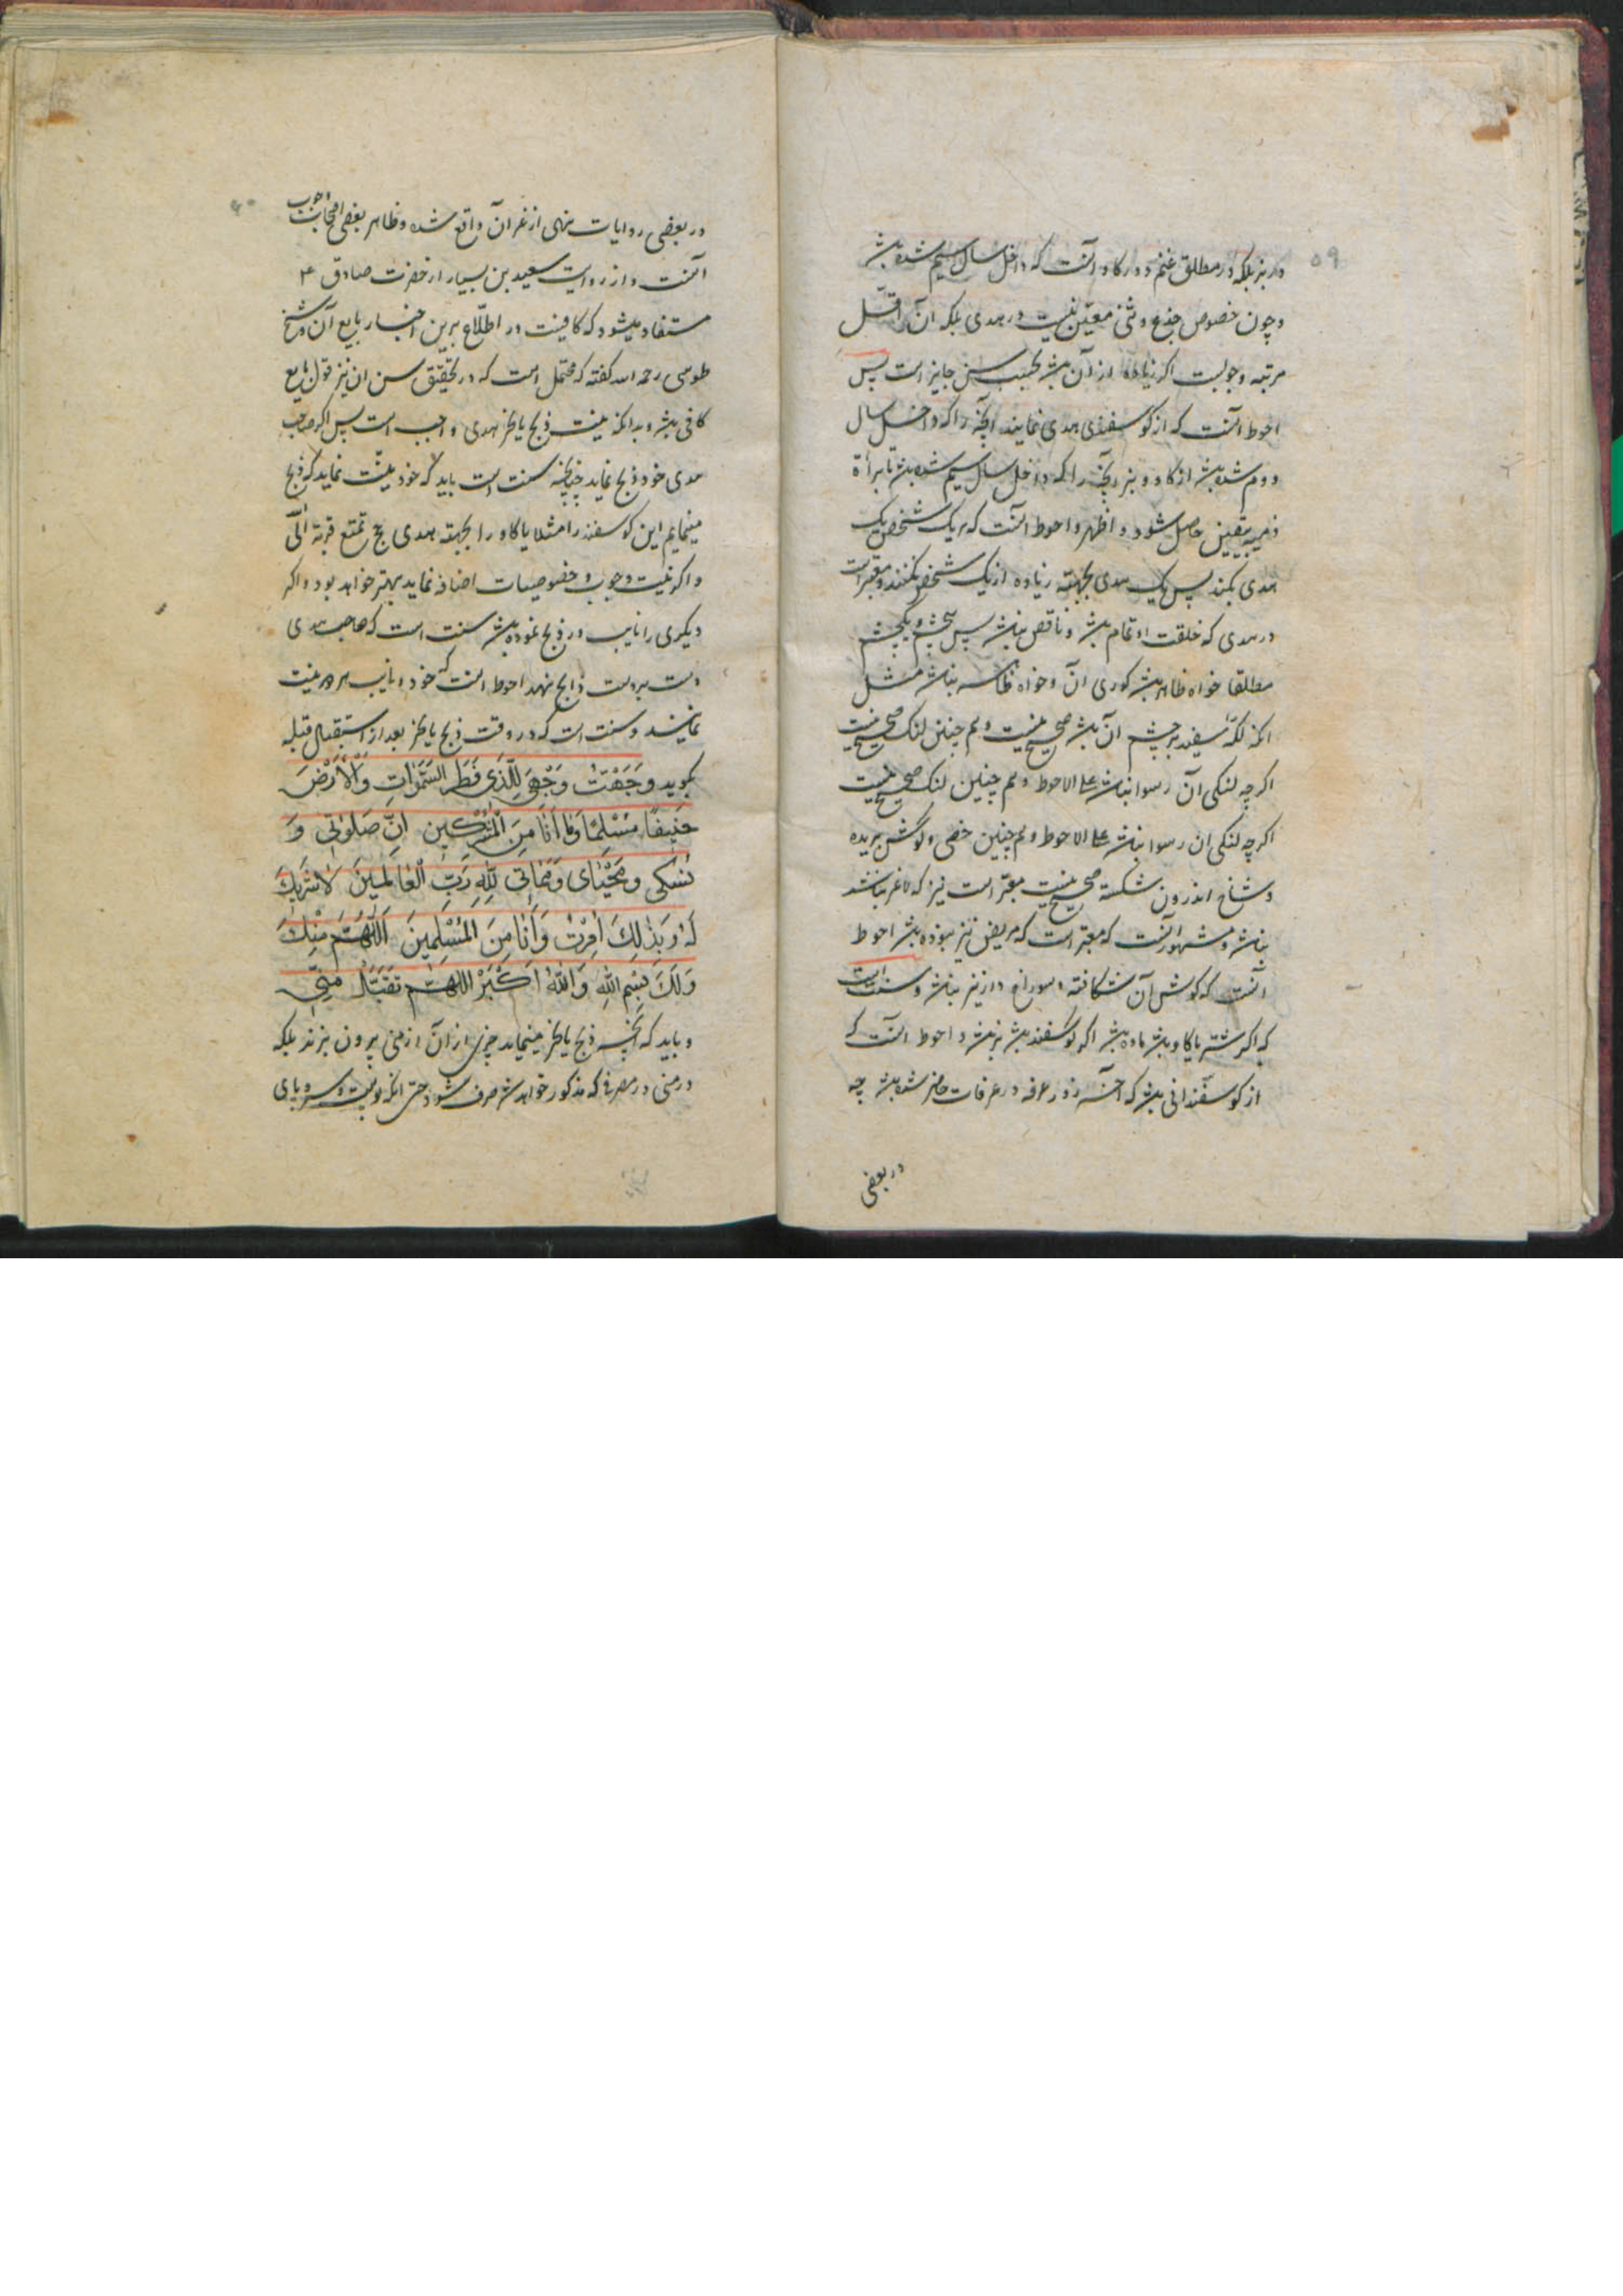 ۵۹
در بز بلکه در مطلق غنم و در کاو آنست که داخل سال سیم شده باشد
و چون خصوص جذع و ثنی معیّن نیست در هدی بلکه آن اقلّ
مرتبه وجوبست اکر زیاده از آن باشد بحسب سن جایز است پس
احوط آنست که از کوسفندی هدی نمایند آنچه را که داخل سال
دوم شده باشد از کاو و بز آنچه را که داخل سال سیم شده باشد تا برأة
ذمه بیقین حاصل شود و اظهر و احوط آنست که هر یک شخص یک
هدی بکند پس یک هدی بجهة زیاده از یک شخص نکنند و معتبر است
در هدی که خلقت او تمام باشد و ناقص نباشد پس یکچشم
مطلقا خواه ظاهر باشد کوری آن و خواه ظاهر نباشد مثل
آنکه لکّه سفید بر چشم آن باشد صحیح نیست و هم چنین لنک صحیح نیست
اکرچه لنکی آن رسوا نباشد علی الاحوط و هم چنین لنک صحیح نیست
اکرچه لنکی ان رسوا نباشد علی الاحوط و هم چنین خصی و کوش بریده
و شاخ اندرون شکسته صحیح نیست معتبر است نیز که لاغر نباشد
نباشد و مشهور آنست که معتبر است که مریض نیز نبوده باشد احوط
آنست که کوش آن شکافته و سوراخ دار نیز نباشد و سنت است
که اکر شتر یا کاو باشد ماده باشد اکر کوسفند باشد نر باشد و احوط آنست که
از کوسفندانی باشد که آنرا روز عرفه در عرفات حاضر شده باشد چه
در بعضی
۶۰
در بعضی روایات نهی از غیر آن واقع شده و ظاهر بعضی اصحاب وجوب
آنست و از روایت سعید بن یسار از حضرت صادق ع
مستفاد میشود که کافیست در اطّلاع برین اخبار بایع آن و شیخ
طوسی رحمه الله کفته که محتمل است که در تحقیق سن ان نیز قول بایع
کافی باشد و بدانکه نیت ذبح یا نحر هدی واجب است پس اکر صاحب
هدی خود ذبح نماید چنانچه سنت است باید که خود نیّت نماید که ذبح
مینمایم این کوسفند را مثلا یا کاو را بجهة هدی حج تمتع قربة الی الله
و اکر نیت وجوب و خصوصیات اضافه نماید بهتر خواهد بود و اکر
دیکری را نایب در ذبح نموده باشد سنت است که صاحب هدی
دست بر دست ذابح نهد احوط آنست که خود و نایب هر دو نیت
نمایند و سنت است که در وقت ذبح یا نحر بعد از استقبال قبله
بکوید وَجَّهْتُ وَجْهِیَ لِلَّذی فَطَرَ السَّمٰوٰاتِ وَالْأَرْضَ
حَنیفًا مُسْلِمًا وَمٰا أَنَا مِنَ الْمُشْرِکینَ اِنَّ صَلوٰتی وَ
نُسُکی وَ مَحْیٰایَ وَ مَمٰاتی لِلّٰهِ رَبِّ الْعٰالَمینَ لٰا شَریكَ
لَهُ وَ بِذٰلِكَ اُمِرْتُ وَ أَنَا مِنَ الْمُسْلِمینَ اَللّٰهُمَّ مِنْكَ
وَلَكَ بِسْمِ اللّٰهِ وَاللّٰهُ اَکْبَرُ اللّٰهُمَّ تَقَبَّلْ مِنّی
و باید که آنچه ذبح یا نحر مینماید چیزی از آن از منی بیرون نبرند بلکه
در منی در مصرفی که مذکور خواهد شد صرف شود حتی آنکه پوست و سر و پای